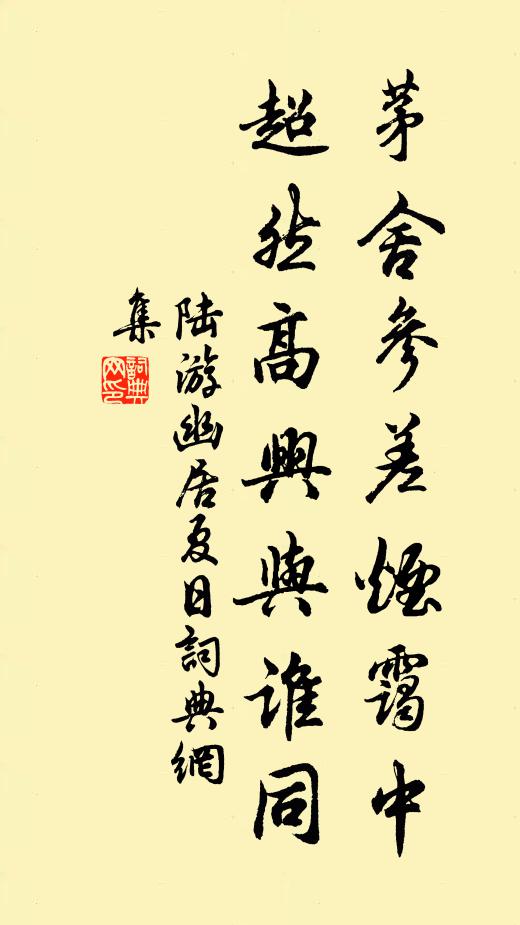 茅舍參差煙靄中
超然高興與誰同
陸游幽居夏日詞典網
集
詞典
网印